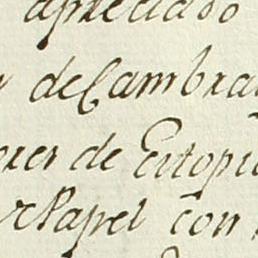 apreciado
de Cambra
de Estopi
Papel con